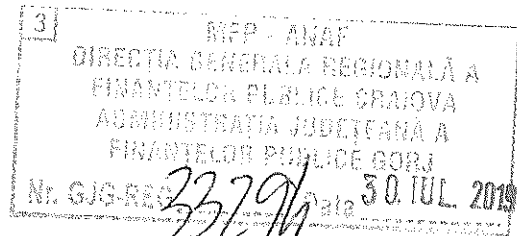 3
MFP - ANAF
DIRECŢIA GENERALA REGIONALĂ A
FINANŢELOR PUBLICE CRAIOVA
ADMINISTRAŢIA JUDEŢEANĂ A
FINANŢELOR PUBLICE GORJ
Nr. GJG-REG 33294 Data 30. IUL. 2019